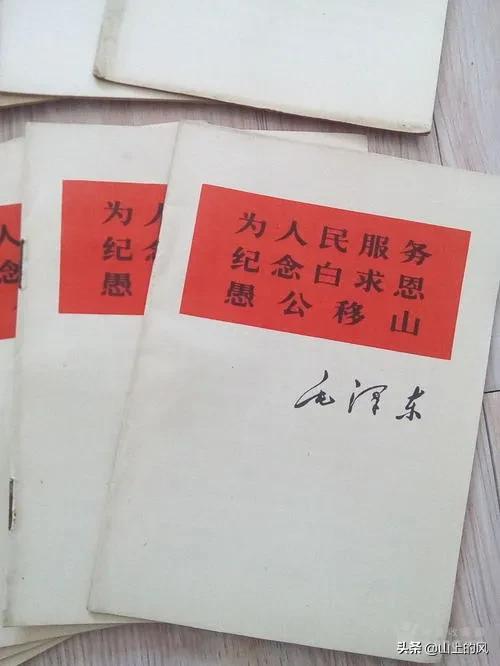 为人民服务
纪念白求恩
愚公移山
毛泽东
为人
纪念
愚
人
念
头条 @山上的风